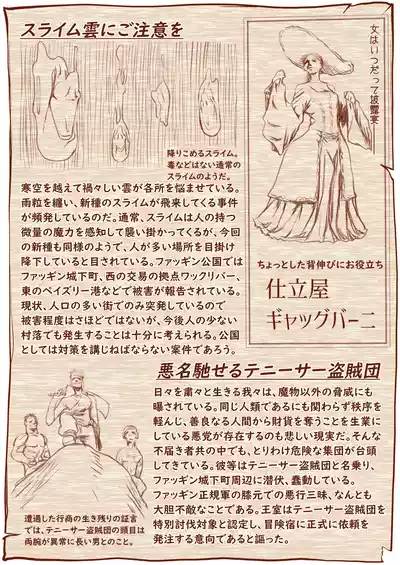 スライム雲にご注意を
降りこめるスライム。
毒などはない通常の
スライムのようだ。
寒空を越えて禍々しい雲が各所を悩ませている。
雨粒を纏い、新種のスライムが飛来してくる事件
が頻発しているのだ。通常、スライムは人の持つ
微量の魔力を感知して襲い掛かってくるが、今回
の新種も同様のようで、人が多い場所を目掛け
降下していると目されている。ファッギン公国では
ファッギン城下町、西の交易の拠点ワックリバー、
東のペイズリー港などで被害が報告されている。
現状、人口の多い街でのみ突発しているので
被害程度はさほどではないが、今後人の少ない
村落でも発生することは十分に考えられる。公国
としては対策を講じねばならない案件であろう。
女はいつだって披露宴
ちょっとした背伸びにお役立ち
仕立屋
ギャッグバーニ
悪名馳せるテニーサー盗賊団
日々を粛々と生きる我々は、魔物以外の脅威にも
曝されている。同じ人類であるにも関わらず秩序を
軽んじ、善良なる人間から財貨を奪うことを生業に
している悪党が存在するのも悲しい現実だ。そんな
不届き者共の中でも、とりわけ危険な集団が台頭
してきている。彼等はテニーサー盗賊団と名乗り、
ファッギン城下町周辺に潜伏、蠢動している。
ファッギン正規軍の膝元での悪行三昧、なんとも
大胆不敵なことである。王室はテニーサー盗賊団を
特別討伐対象と認定し、冒険宿に正式に依頼を
発注する意向であると謳った。
遭遇した行商の生き残りの証言
では、テニーサー盗賊団の頭目は
両腕が異常に長い男とのこと。